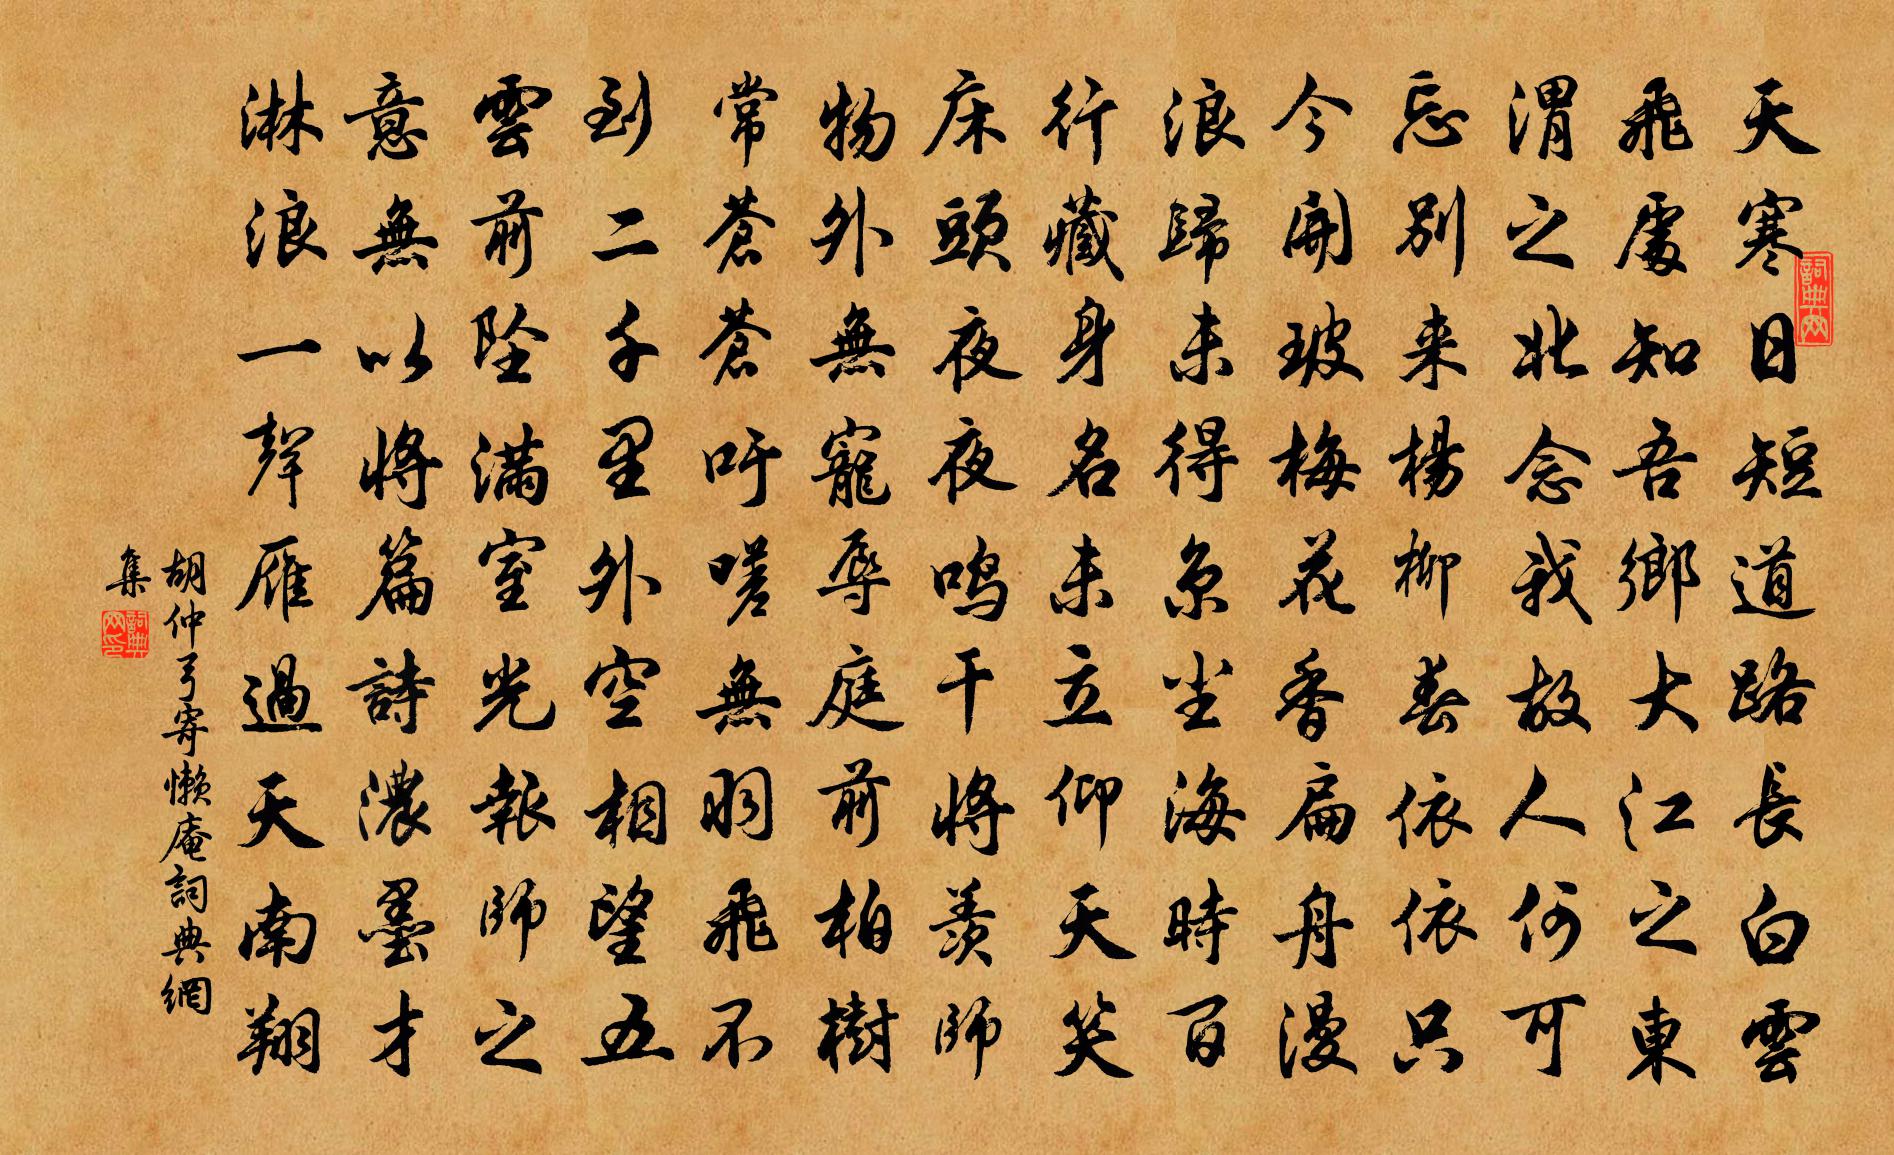 天寒日短道路長白雲
飛處知吾鄉大江之東
渭之北念我故人何可
忘別来楊柳春依依只
今開玻梅花香扁舟漫
浪歸未得京尘海時百
行藏身名未立仰天笑
床頭夜夜鳴干將羨師
物外無寵辱庭前柏樹
常蒼蒼吁嗟無羽飛不
到二千里外空相望五
雲前坠滿室光報師之
意無以將篇詩濃墨才
淋浪一聲雁過天南翔
胡仲弓寄懶庵詞典網
集
詞典网
詞典网印